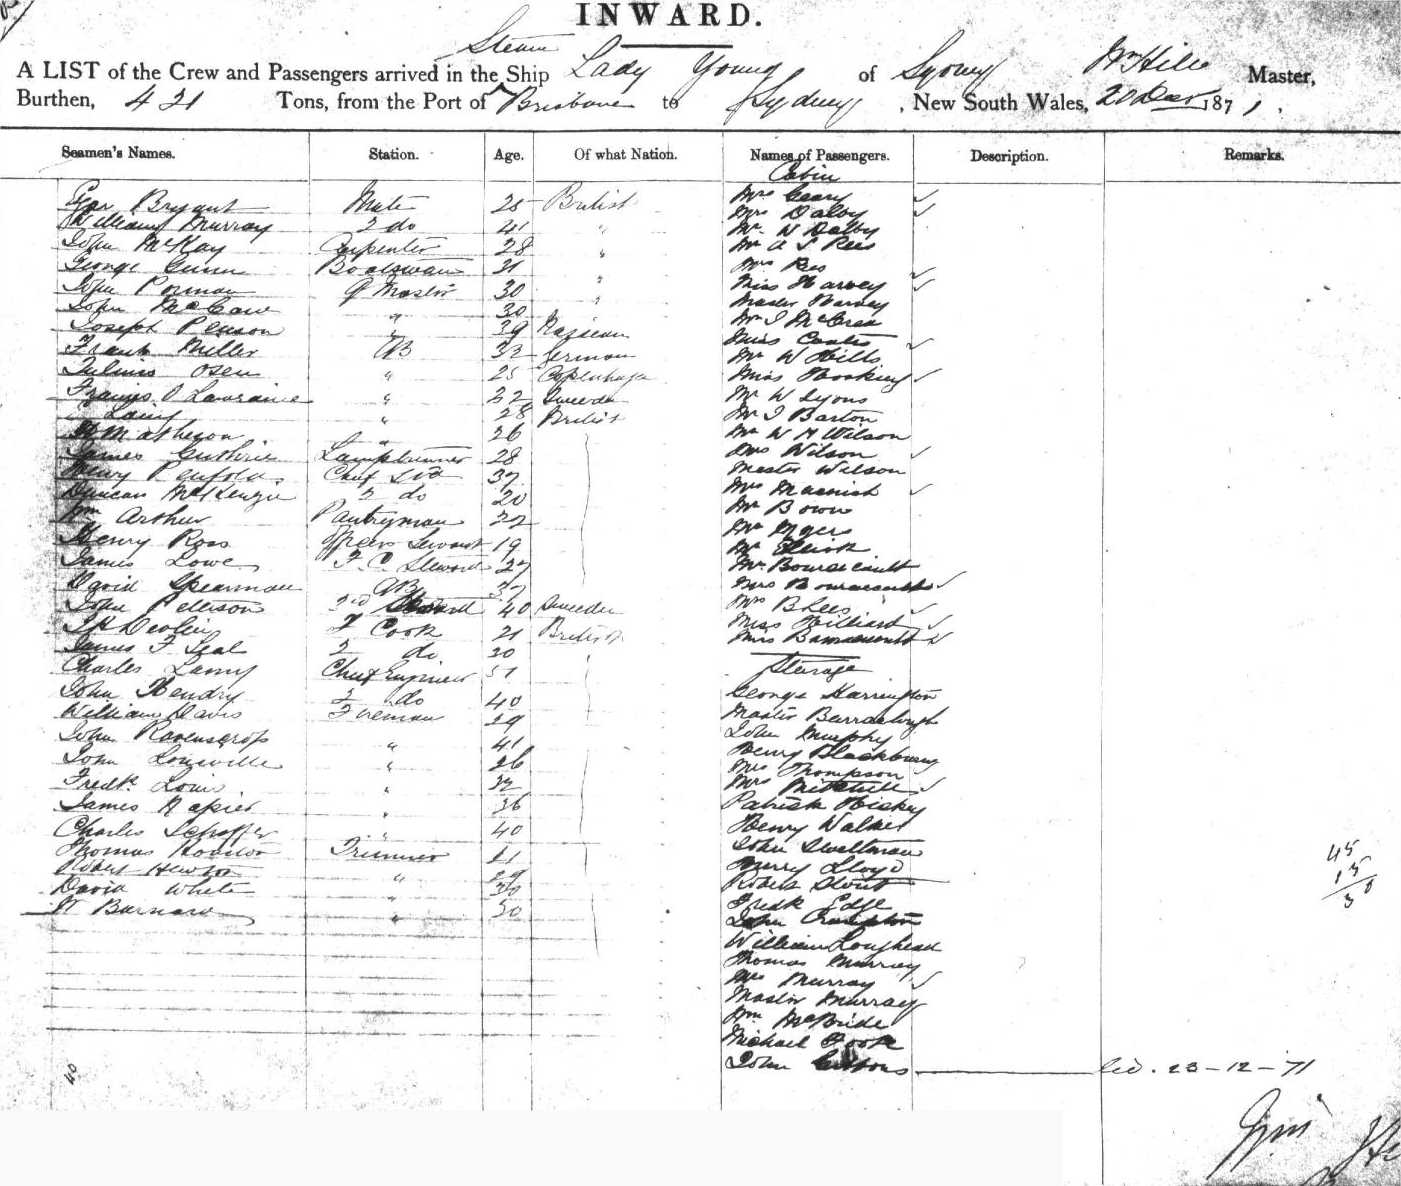 INWARD.
Steam
A LIST of the Crew and Passengers arrived in the Ship Lady Young of Sydney Wm Hill Master,
Burthen, 421 Tons, from the Port of Brisbane to Sydney, New South Wales, 20 Decr 1871.
Seamen's Names. Station. Age. Of what Nation. Names of Passengers. Description. Remarks.
Cabin
Geo Bryant Mate 25 British
William Murray 2 do 41 "
John McKay Carpenter 28 "
George Gunn Boatswain 31
John Porman Q Master 30 "
John McCaw " 30 "
Joseph Penson " 39
Frank Miller AB 32 German
Julius Osen " 25 Copenhagen
Lawrance " 22 Sweden
Laing " 28 British
Matheson " 26
James Guthrie Lamptrimmer 28
Henry Penfold Chief Std 37
Duncan McKenzie 2 do 20
Wm Arthur Pantryman 22
Henry Ross Officers Servant 19
James Lowe F. C. Steward 27
David Spearman AB 37
John Petterson 3rd 40 Sweden
Devlin F Cook 21 British
James F Seal 2 do 20
Charles Lamy Chief Engineer 51
John Hendry 2 do 40
William Davis Fireman 29
John Ravenscrop " 41
John Louisville " 26
Fredk Louis " 32
James Napier " 36
Charles Schoffer " 40
Thomas Houston Trimmer 21
Robert Hewson " 29
David White " 30
Barnard " 30
40
Mrs Geary
Mrs Dalby
Mr W Dalby
Mr A S Rees
Mrs Rees
Miss Harvey
Master Harvey
Mr J McCrea
Miss Coates
Mr W Hills
Miss Hocking
Mr W Lyons
Mr J Barton
Mr W H Wilson
Mrs Wilson
Master Wilson
Mrs Macnish
Mr Bown
Mr Myers
Mr Elliott
Mr Bourcicault
Mrs Bourcicault
Mrs B Lees
Miss Hilliard
Miss
Steerage
George Harrington
Master
John Murphy
Henry Blackburn
Mrs Thompson
Mrs Mitchell
Patrick Hickey
Henry Walker
John Sweltman
Harry Lloyd
Robert Stout
Fredk Edge
John Crampton
William Loughead
Thomas Murray
Mrs Murray
Master Murray
Wm McBride
Michael Foote
John Gibbons
45
15
30
23-12-71
Wm